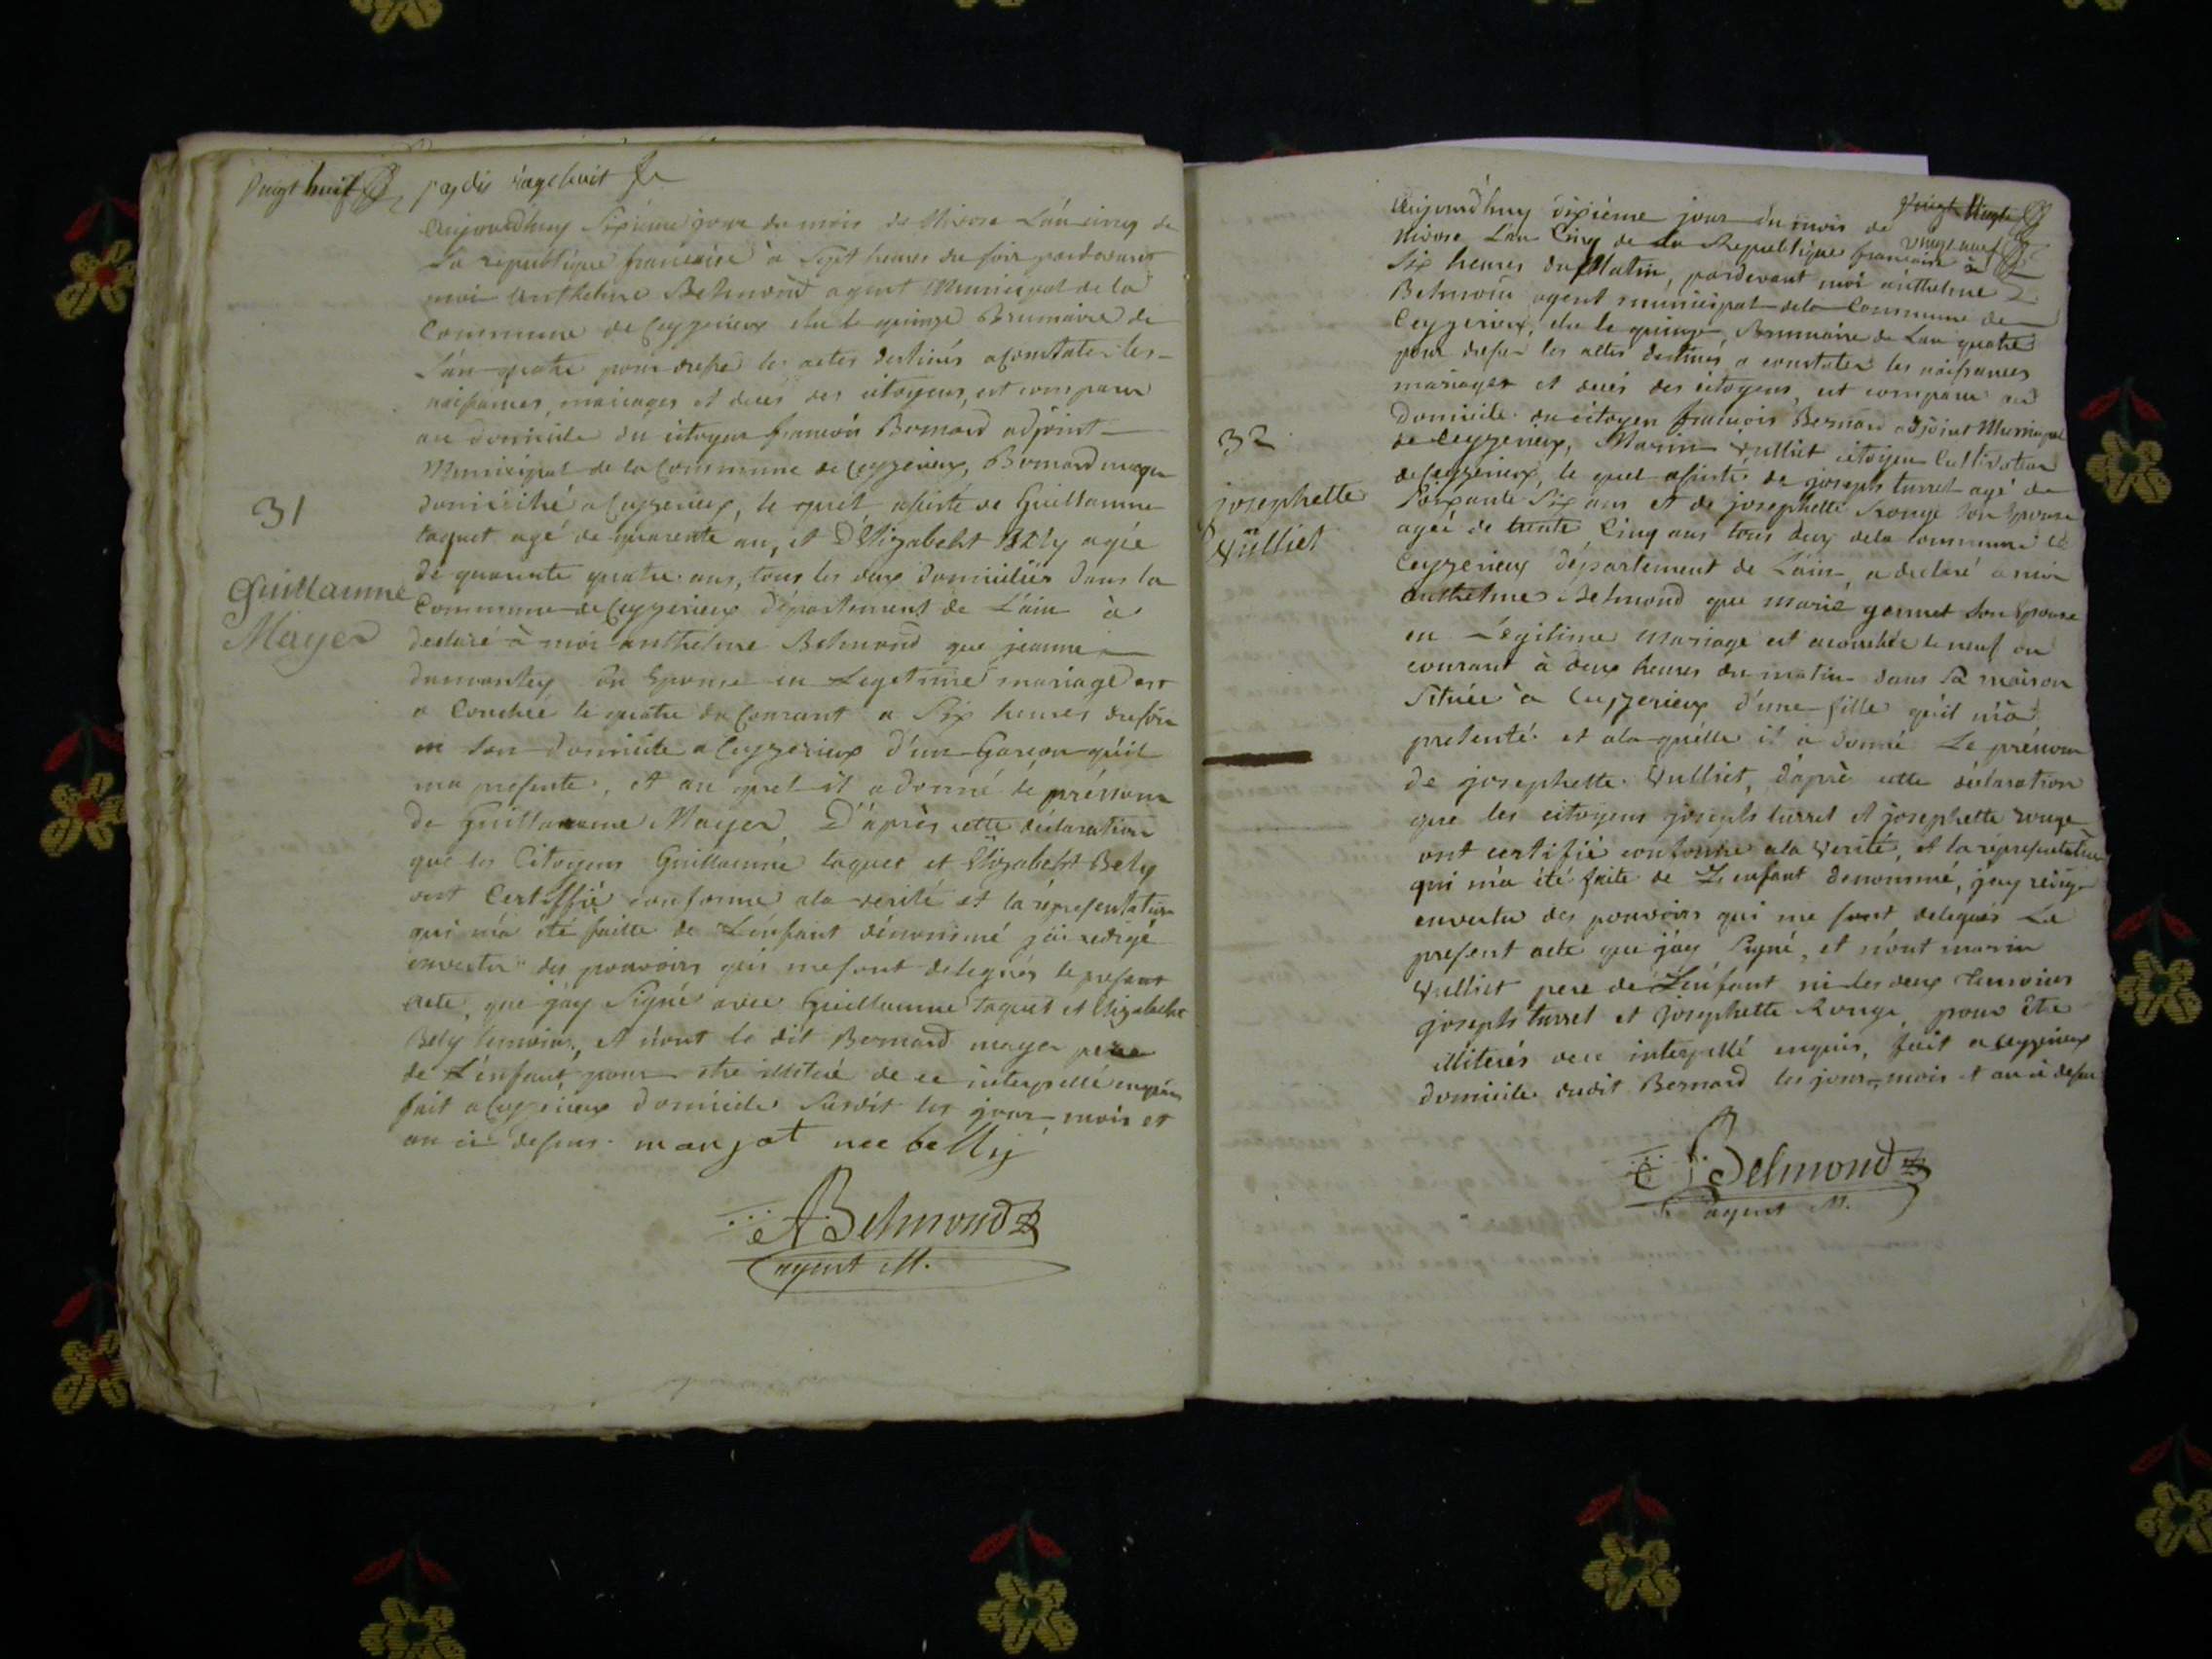 Vingt huit
page dix vingt huit
Aujourdhuy Sixième jour du mois de Nivose L'an cinq de
La republique francaise à Sept heures du soir pardevant
moi Anthelme Belmond agent Municipal de la
Commune de Ceyzerieux elu le quinze Brumaire de
L'an quatre pour dresser les actes destinés a constater les
naissances, mariages et decès des citoyens, est comparu
au domicile du citoyen francois Bernard adjoint
Municipal de la Commune de Ceyzerieux, Bernard mayer
domicilié a Ceyzerieux, le quel assisté de Guillaume
taquet agé de quarente an, et D'Elizabeht Bely agée
de quarante quatre ans, tous les deux domiciliés dans la
Commune de Ceyzerieux département de L'ain à
declaré à moi anthelme Belmond que jeanne
Son Epouse en Legitime mariage est
a Couchée le quatre du Courant a Six heures du soir
en Son domicile a Ceyzerieux d'un Garçon qu'il
ma presenté, et au quel il a donné le prénom
de Guillaume Mayer, D'après cette déclaration
que les Citoyens Guillaume taquet et Elizabeht Bely
ont Certiffié conforme ala verité et la representation
qui m'a été faitte de L'enfant dénommé j'ai redigé
envertu des pouvoirs qui me sont delegués le present
acte, que j'ay Signé avec Guillaume taquet et Elizabeht
Bely temoins, et n'ont le dit Bernard mayer pere
de L'enfant pour etre illiteré de ce interpellé enquis
fait a Ceyzerieux domicile Susdit les jour, mois et
an ci dessus. marjot nee bellÿ
ABelmond
agent M.
31
Guillaume
Mayer
vingt neuf
Aujourd'huy dixième jour du mois de
Nivose L'an Cinq de la Republique francaise à
Six heures du Matin, pardevant moi anthelme
Belmond agent municipal dela Commune de
Ceyzerieux, elu le quinze, Brumaire de L'an quatre
pour dresser les actes destinés a constater les naissances
mariages et decès des citoyens, est comparu au
Domicile du citoyen francois Bernard adjoint Municipal
de Ceyzerieux, Marin Vulliet citoyen Cultivateur
de Ceyzerieux, le quel assisté de joseph turrel agé de
Soixante Six ans et de josephette Rouge Son Epouse
agée de trente Cinq ans tous deux dela commune de
Ceyzerieux département de L'ain, a declaré a moi
Anthelme Belmond que marie gonnet Son Epouse
en Légitime Mariage est acouchée le neuf du
courant à deux heures du matin dans Sa maison
Située à Ceyzerieux d'une fille qu'il m'a
presenté et ala quelle il a donné Le prénom
de josephette Vulliet, d'après cette déclaration
que les citoyens joseph turrel et josephette rouge
ont certifié conforme ala verité, et la representation
qui m'a été faite de L'enfant denommé, j'ay redigé
envertu des pouvoirs qui me sont delegués Le
present acte que j'ay Signé, et n'ont marin
Vulliet pere de L'enfant ni les deux temoins
joseph turrel et josephette Rouge, pour être
illiterés de ce interpellé enquis, fait a Ceyzerieux
domicile dudit Bernard les jour, mois et an ci dessus
Belmond
agent M.
32
josephette
Vulliet